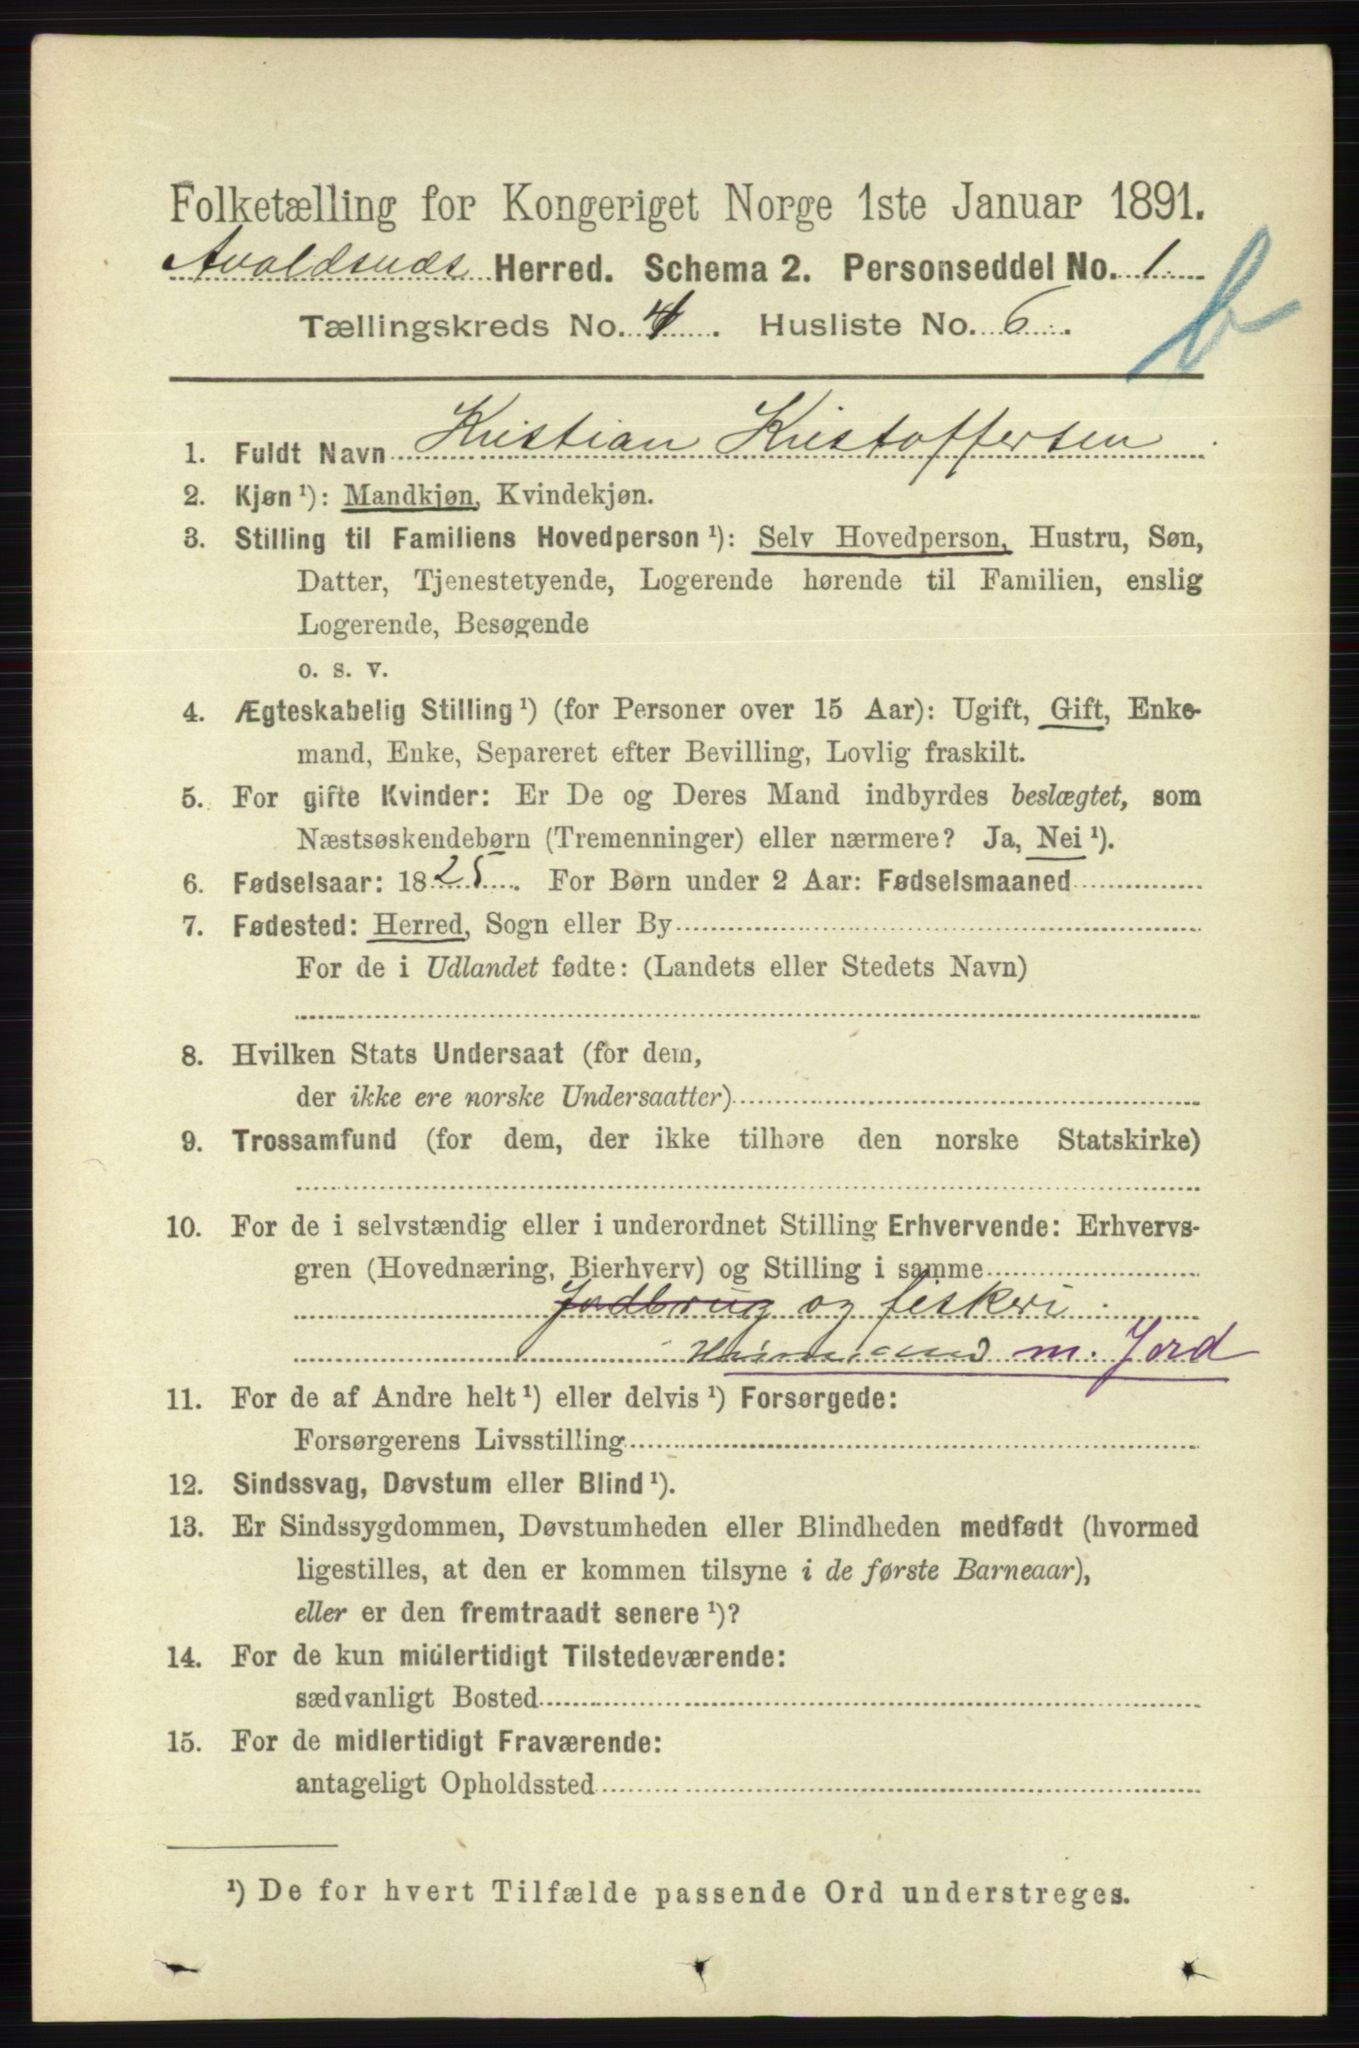 Folketælling for Kongeriget Norge 1ste Januar 1891.
Avaldsnds Herred. Schema 2. Personseddel No. 1
Tællingskreds No. 4. Husliste No. 6.
b
1. Fuldt Navn Kristian Kristoffersen
2. Kjøn ¹): Mandkjøn, Kvindekjøn.
3. Stilling til Familiens Hovedperson ¹): Selv Hovedperson, Hustru, Søn,
Datter, Tjenestetyende, Logerende hørende til Familien, enslig
Logerende, Besøgende
o. s. v.
4. Ægteskabelig Stilling ¹) (for Personer over 15 Aar): Ugift, Gift, Enke-
mand, Enke, Separeret efter Bevilling, Lovlig fraskilt.
5. For gifte Kvinder: Er De og Deres Mand indbyrdes beslægtet, som
Næstsøskendebørn (Tremenninger) eller nærmere? Ja, Nei ¹).
6. Fødselsaar: 1825. For Børn under 2 Aar: Fødselsmaaned
7. Fødested: Herred, Sogn eller By
For de i Udlandet fødte: (Landets eller Stedets Navn)
8. Hvilken Stats Undersaat (for dem,
der ikke ere norske Undersaatter)
9. Trossamfund (for dem, der ikke tilhøre den norske Statskirke)
10. For de i selvstændig eller i underordnet Stilling Erhvervende: Erhvervs-
gren (Hovednæring, Bierhverv) og Stilling i samme
Jordbrug og fiskeri
m. Jord
11. For de af Andre helt ¹) eller delvis ¹) Forsørgede:
Forsørgerens Livsstilling
12. Sindssvag, Døvstum eller Blind ¹).
13. Er Sindssygdommen, Døvstumheden eller Blindheden medfødt (hvormed
ligestilles, at den er kommen tilsyne i de første Barneaar),
eller er den fremtraadt senere ¹)?
14. For de kun midlertidigt Tilstedeværende:
sædvanligt Bosted
15. For de midlertidigt Fraværende:
antageligt Opholdssted
¹) De for hvert Tilfælde passende Ord understreges.